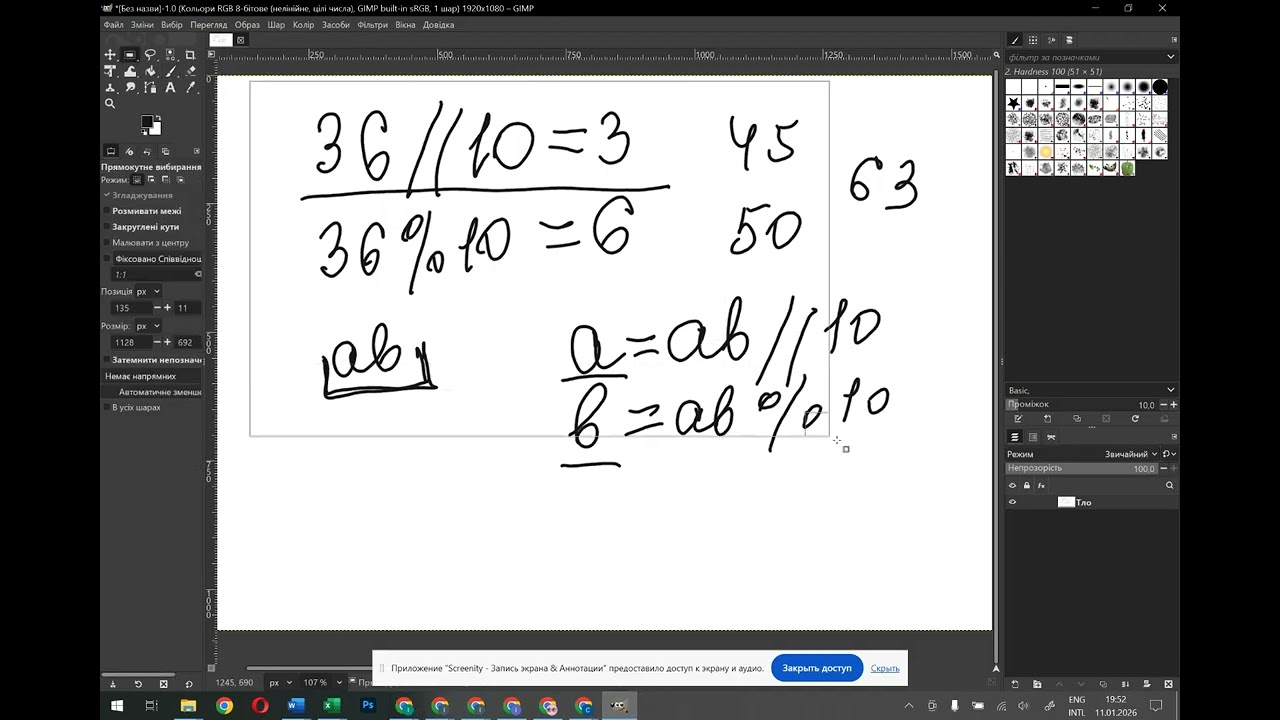 *[Без назви]-1.0 (Кольори RGB 8-бітове (нелінійне, цілі числа), GIMP built-in sRGB, 1 шар) 1920x1080 – GIMP
Файл Зміни Вибір Перегляд Образ Шар Колір Засоби Фільтри Вікна Довідка
250 500 750 1000 1250 1500
фільтр за позначками
2. Hardness 100 (51 × 51)
36//10=3 45
63
36%10=6 50
ab
a=ab//10
b=ab%10
Прямокутне вибирання
Режим:
Згладжування
Розмивати межі
Закруглені кути
Малювати з центру
Фіксовано Співвіднош
1:1
Позиція px
135 11
Розмір: px
1128 692
Затемнити непознач
Немає напрямних
Автоматичне зменш
В усіх шарах
Basic,
Проміжок 10,0
Режим Звичайний
Непрозорість 100,0
Тло
Приложение "Screenity - Запись экрана & Аннотации" предоставило доступ к экрану и аудио. Закрыть доступ Скрыть
1245, 690 px 107 %
ENG 19:52
INTL 11.01.2026